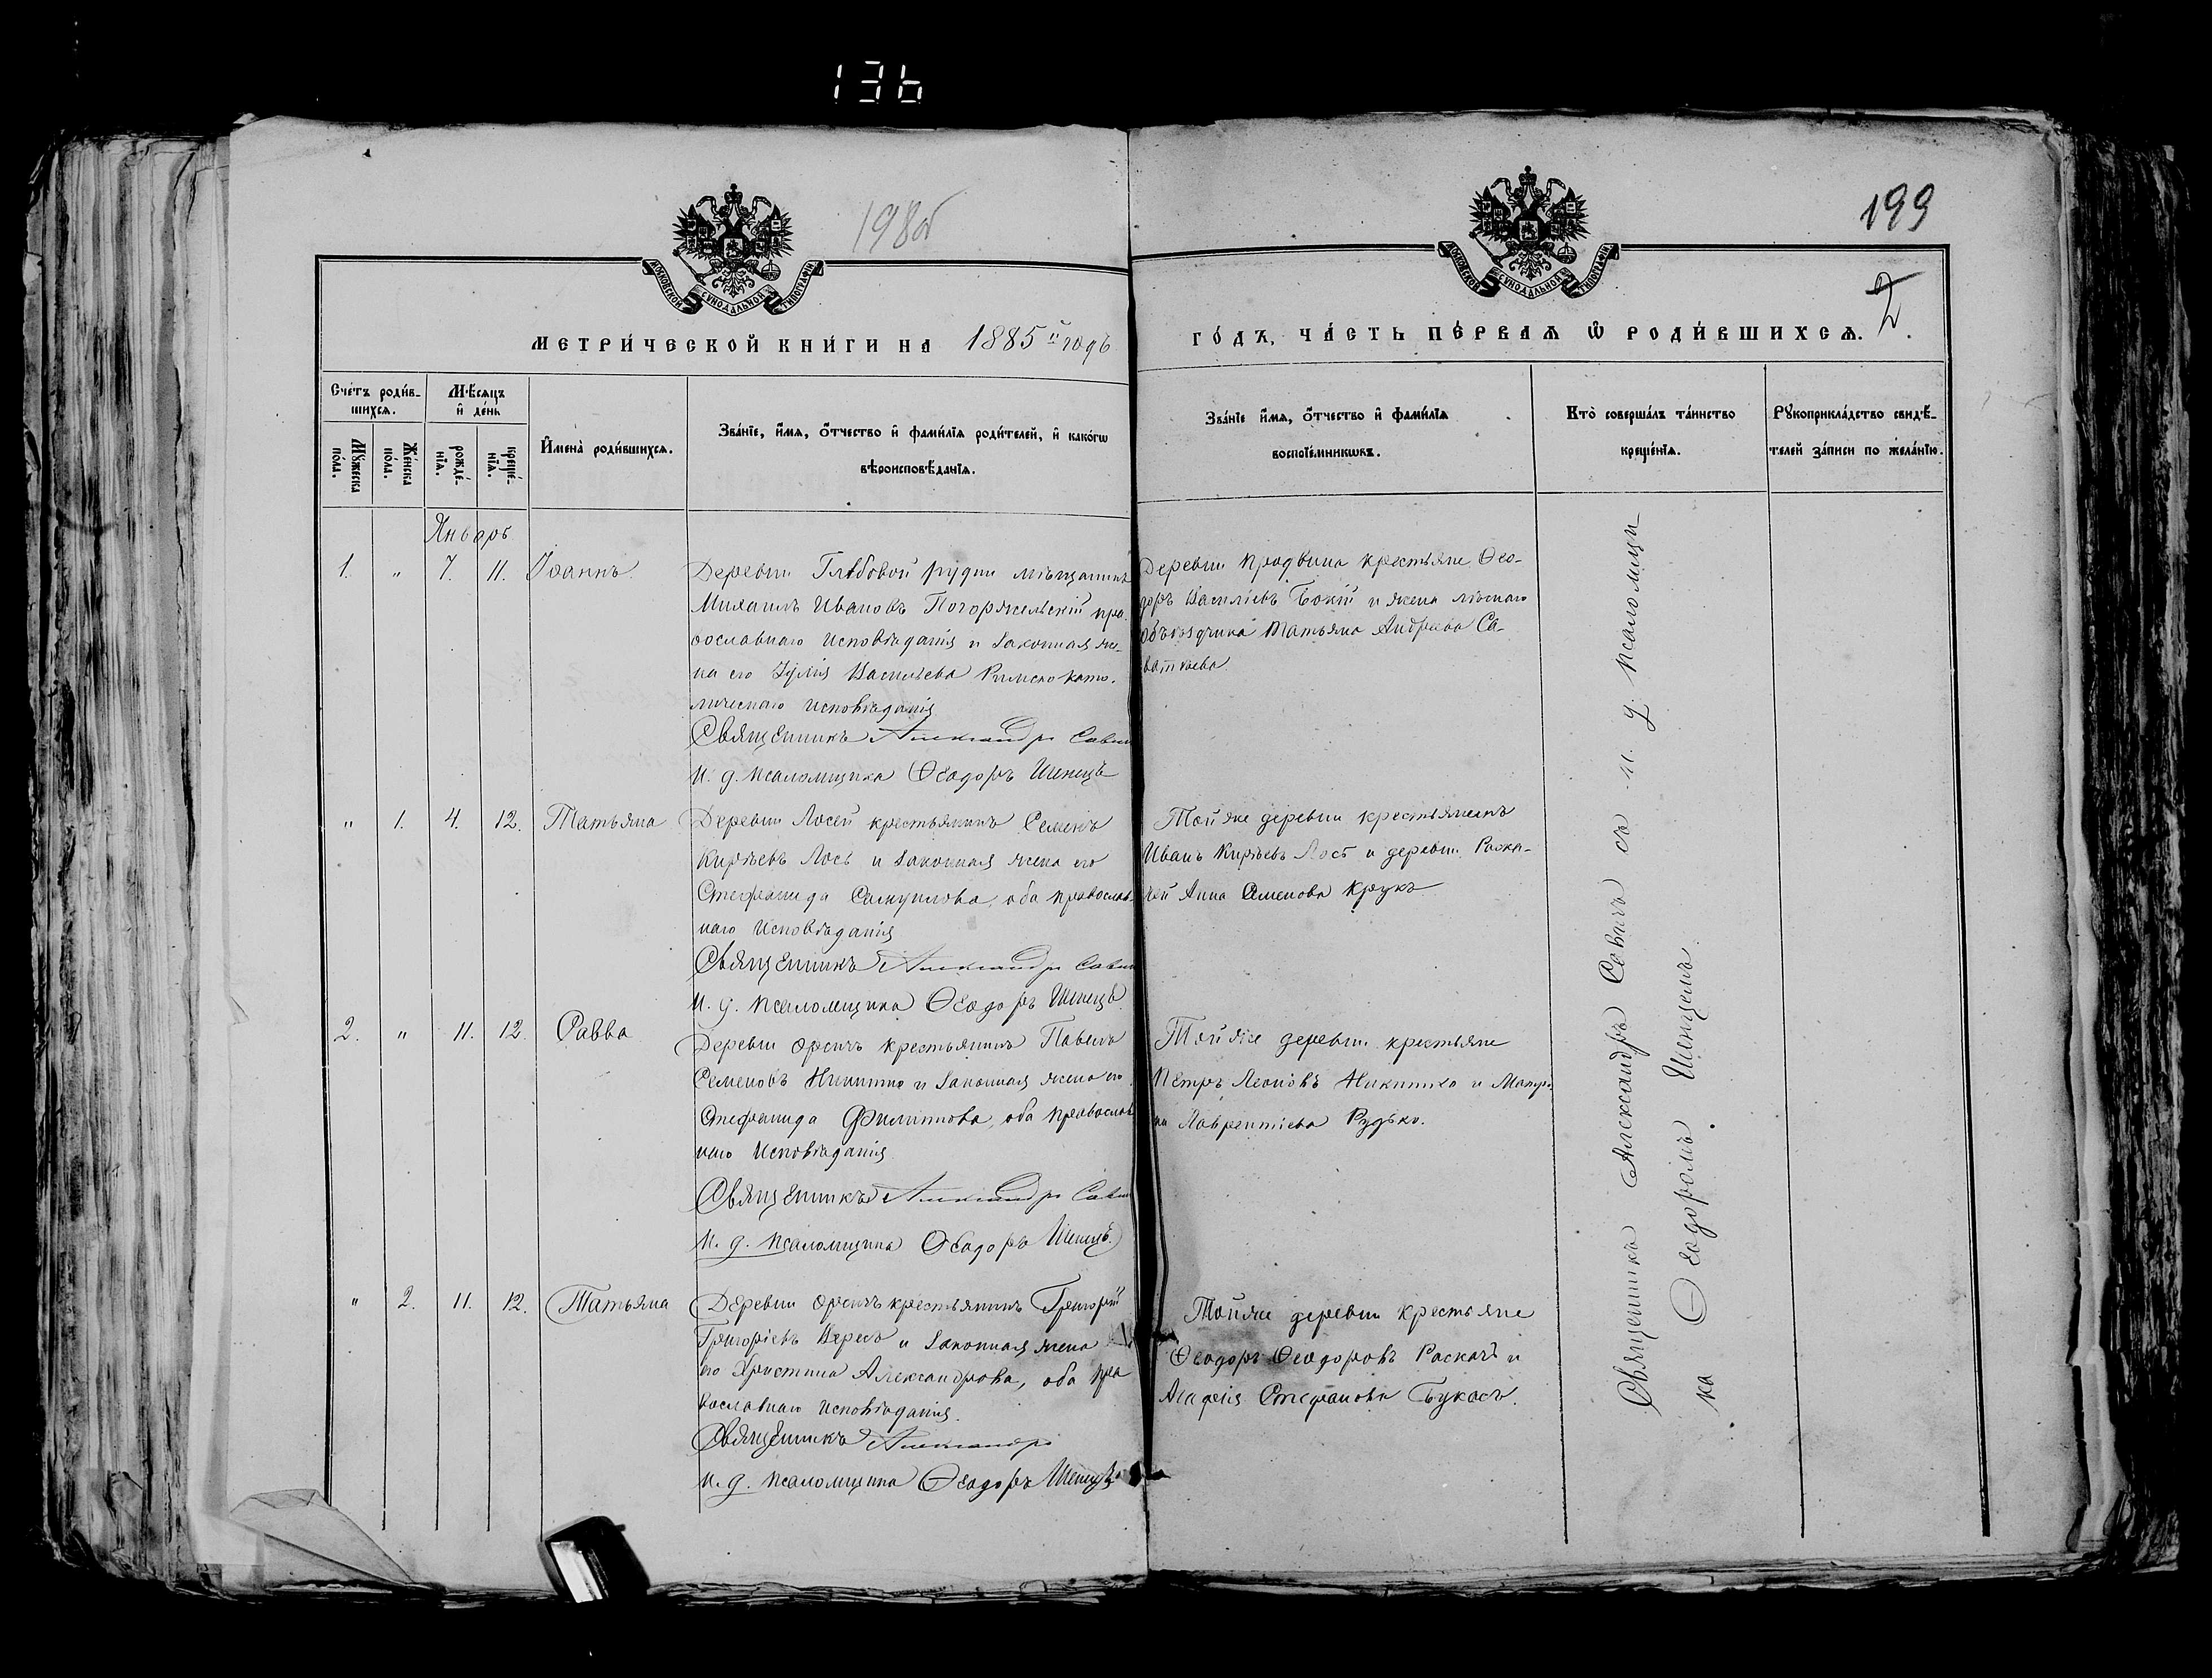 136
198об
199
2
МОСКОВСКОЙ СѴНОДАЛЬНОЙ ТИПОГРАФІИ
МОСКОВСКОЙ СѴНОДАЛЬНОЙ ТИПОГРАФІИ
МЕТРИ́ЧЕСКОЙ КНИ́ГИ НА 1885й годъ
ГО́ДЪ, ЧА́СТЬ ПЕ́РВАѦ Ѡ҆ РОДИ́ВШИХСѦ.
Сче́тъ роди́в-
шихсѧ.
Мꙋ́жеска по́ла.
Же́нска по́ла.
Мѣ́сѧцъ и҆ де́нь
рожде́-
нїѧ.
креще́-
нїѧ.
И҆мена̀ роди́вшихсѧ.
Зва́нїе, и҆́мѧ, ѻ҆́тчество и҆ фами́лїѧ роди́телей, и҆ како́гѡ
вѣроисповѣ́данїѧ.
Зва́нїе и҆́мѧ, ѻ҆́тчество и҆ фами́лїѧ
воспрїе́мникѡвъ.
Кто̀ соверша́лъ та́инство
креще́нїѧ.
Рꙋкоприкла́дство свидѣ́-
телей за́писи по жела́нїю.
Январь
1. " 7. 11. Іоаннъ
Деревни Глѣбовой рудни мѣщанинъ
Михаилъ Ивановъ Погоржельскій пра-
вославнаго исповѣданія и законная же-
на его Іулія Васильева Римско като-
лическаго исповѣданія
Священникъ Александръ Савич
И. д. псаломщика Ѳеодоръ Шенецъ
Деревни крестьяне Ѳео-
доръ Василіевъ Божій и жена лѣснаго
объѣздчика Татьяна Андреева Са-
" 1. 4. 12. Татьяна
Деревни Лосей крестьянинъ Семенъ
Киріевъ Лось и законная жена его
Стефанида Самуилова, оба православ-
наго исповѣданія
Священникъ Александръ Савич
И. д. псаломщика Ѳеодоръ Шенецъ
Той же деревни крестьянинъ
Иванъ Киріевъ Лось и деревни Раска-
чей Анна Семенова Крукъ
2. " 11. 12. Савва
Деревни Орсичъ крестьянинъ Павелъ
Семеновъ Никитко и законная жена его
Стефанида Филиппова, оба православ
наго исповѣданія
Священникъ Александръ Савич
И. д. псаломщика Ѳеодоръ Шенецъ
Той же деревни крестьяне
Петръ Леоновъ Никитко и Матро
на Лаврентіева Рудько.
" 2. 11. 12. Татьяна
Деревни Орсичъ крестьянинъ Григорій
Григоріевъ и законная жена
его Христина Александрова, оба пра
вославнаго исповѣданія.
Священникъ Александръ
И. д. псаломщика Ѳеодоръ Шенецъ
Той же деревни крестьяне
Ѳеодоръ Ѳеодоровъ Раскачъ и
Агафія Стефанова Букасъ.
Священникъ Александръ Савичъ съ и. д. псаломщи-
ка Ѳеодоромъ Шенцемъ